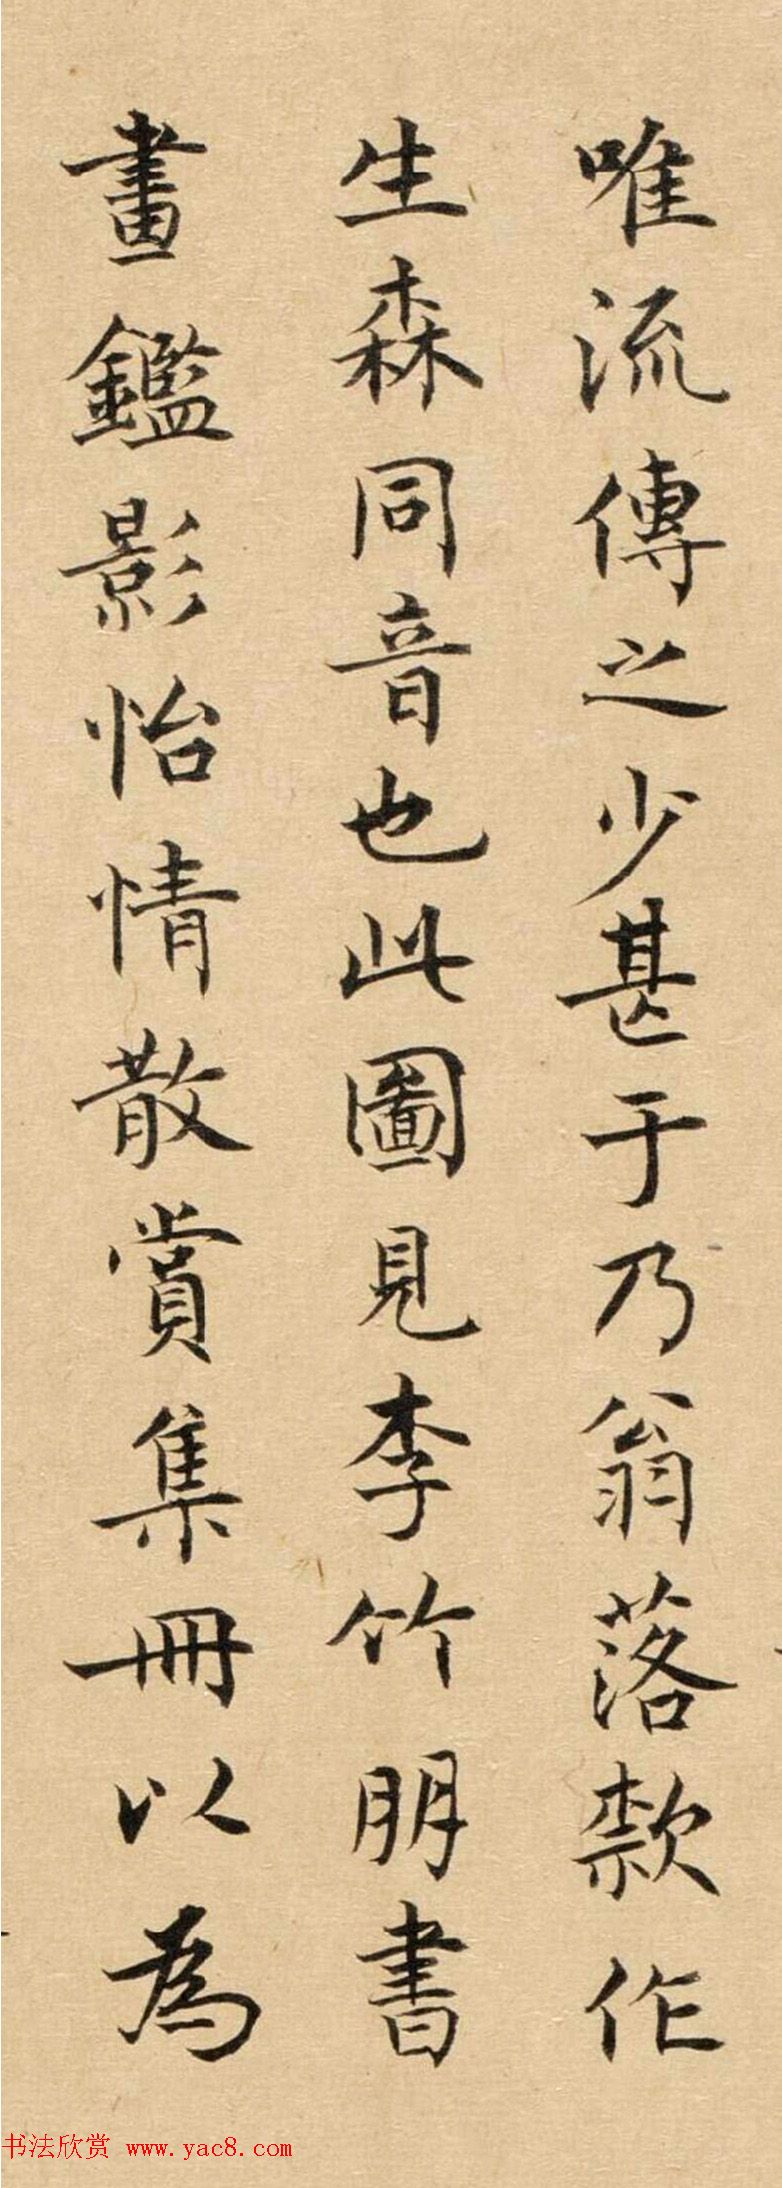 唯流傳之少甚于乃翁落款作
生森同音也此圖見李竹朋書
畫鑑影怡情散賞集冊以為
书法欣赏 www.yac8.com